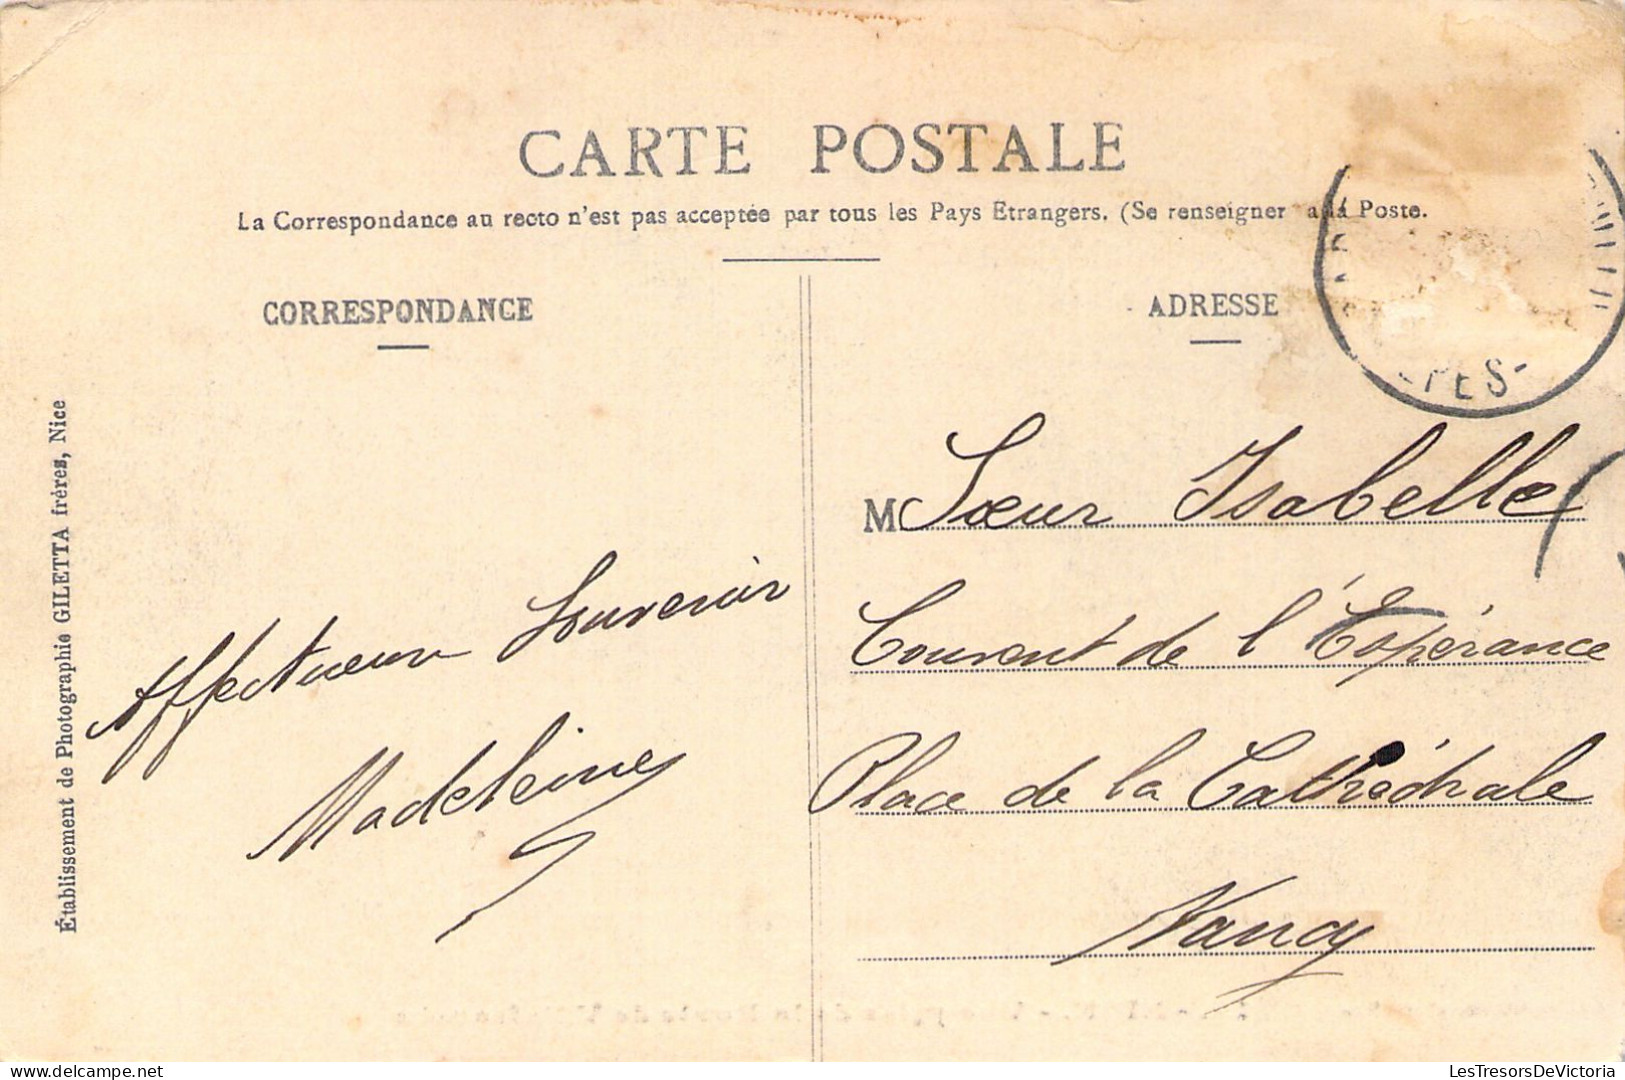 CARTE POSTALE
La Correspondance au recto n'est pas acceptée par tous les Pays Etrangers. (Se renseigner à la Poste.
CORRESPONDANCE
ADRESSE
PES-
M Sœur Isabelle
Couvent de l'Espérance
Place de la Cathédrale
Nancy
Affectueux Souvenir
Madeleine
Établissement de Photographie GILETTA frères, Nice
LesTresorsDeVictoria